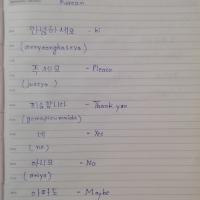 Korean
안녕하세요 - hi
(annyeonghaseyo)
주세요 - Please
(juseyo)
- Thank you
(gomapseumnida)
네 - Yes
(ne)
아니요 - No
(aniyo)
아마도 - Maybe